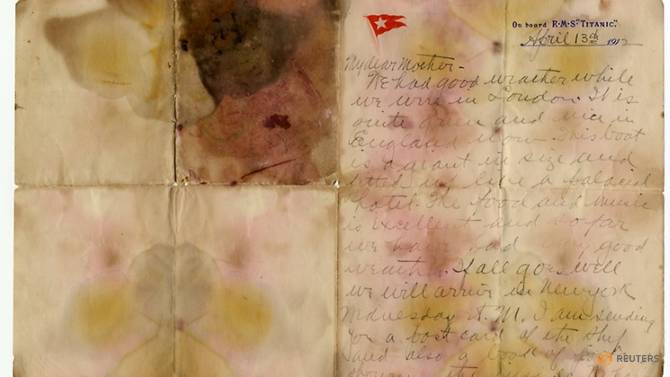 On board R.M.S. "TITANIC."
April 13th 1912
My dear Mother -
We had good weather while
we were in London. It is
quite green and nice in
England now. This boat
is a giant in size and
fitted up like a palacial
hotel. The food and music
is excellent and so far
we have had very good
weather. If all goes well
we will arrive in New York
Wednesday A.M. I am sending
you a post card of the ship
and also a book of
REUTERS